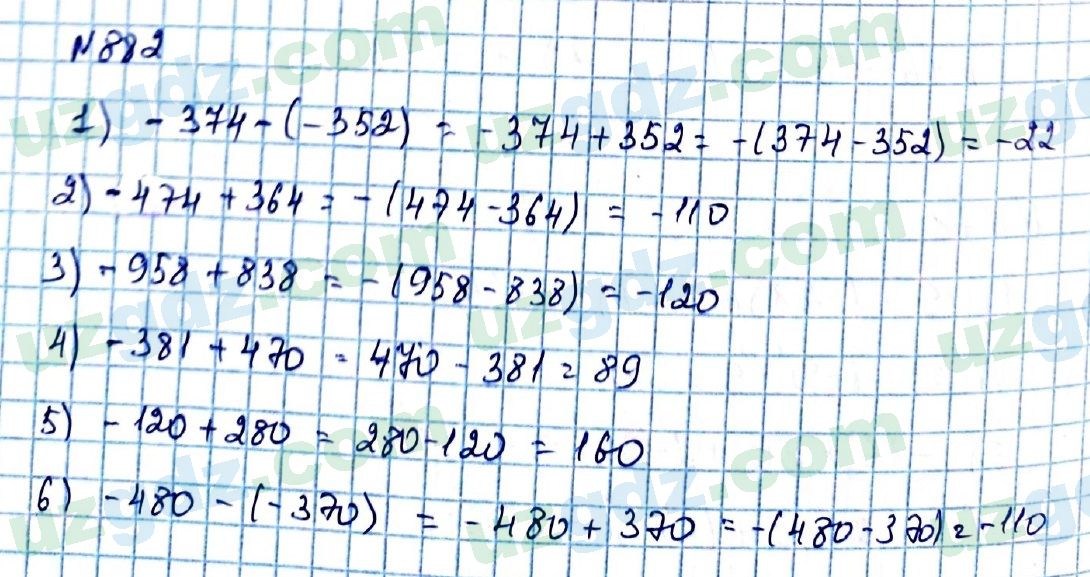 №882
1) -374-(-352) = -374+352 = -(374-352) = -22
2) -474+364 = -(474-364) = -110
3) -958+838 = -(958-838) = -120
4) -381+470 = 470-381 = 89
5) -120+280 = 280-120 = 160
6) -480-(-370) = -480+370 = -(480-370) = -110
uzgdz.com